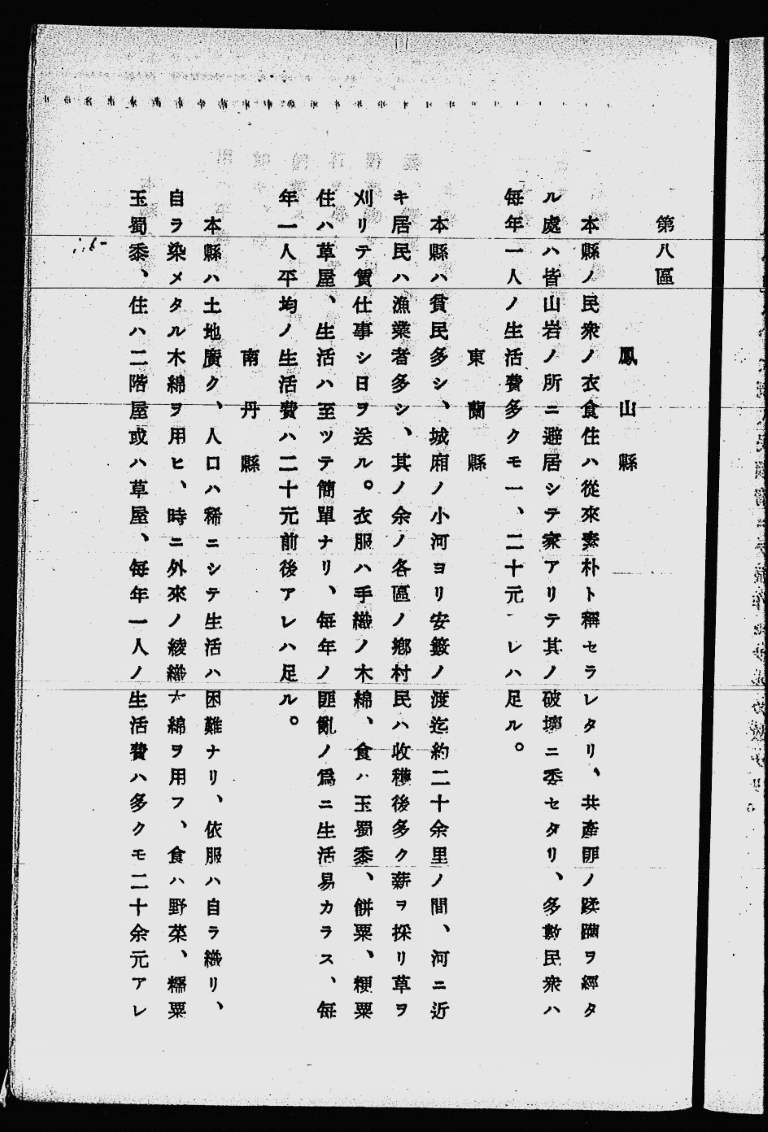 第八區
鳳山縣
本縣ノ民衆ノ衣食住ハ從來素朴ト稱セラレタリ、共產匪ノ蹂躪ヲ經タ
ル處ハ皆山岩ノ所ニ避居シテ家アリテ其ノ破壞ニ委セタリ、多數民衆ハ
每年一人ノ生活費多クモ一、二十元 レハ足ル。
東蘭縣
本縣ハ貧民多シ、城廂ノ小河ヨリ安簍ノ渡迄約二十余里ノ間、河ニ近
キ居民ハ漁業者多シ、其ノ余ノ各區ノ鄕村民ハ收穫後多ク薪ヲ採リ草ヲ
刈リテ賃仕事シ日ヲ送ル。衣服ハ手織ノ木綿、食ハ玉蜀黍、餅粟、粳粟
住ハ草屋、生活ハ至ツテ簡單ナリ、每年ノ匪亂ノ爲ニ生活易カラス、每
年一人平均ノ生活費ハ二十元前後アレハ足ル。
南丹縣
本縣ハ土地廣ク、人口ハ稀ニシテ生活ハ困難ナリ、依服ハ自ラ織リ、
自ラ染メタル木綿ヲ用ヒ、時ニ外來ノ綾織木綿ヲ用フ、食ハ野菜、糯粟
玉蜀黍、住ハ二階屋或ハ草屋、每年一人ノ生活費ハ多クモ二十余元アレ